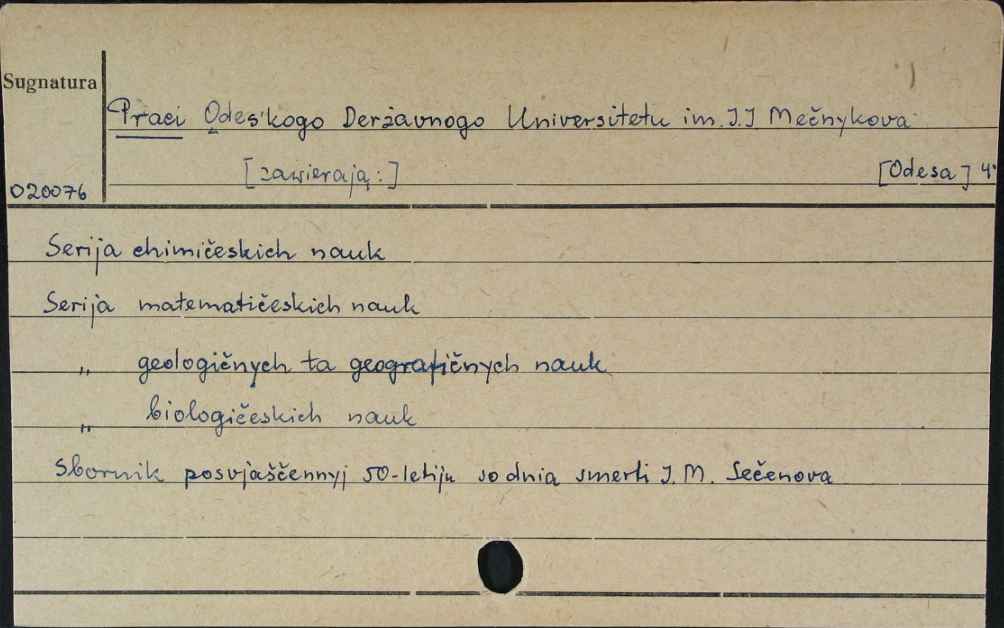 Sugnatura
Praci Odes'kogo Deržavnogo Universitetu im. I.I Mečnykova
[zawierają:] [Odesa] 4°
020076
Serija chimičeskich nauk
Serija matematičeskich nauk
" geologičnych ta geografičnych nauk
" biologičeskich nauk
Sbornik posvjaščennyj 50-letiju so dnia smerti I. M. Sečenova